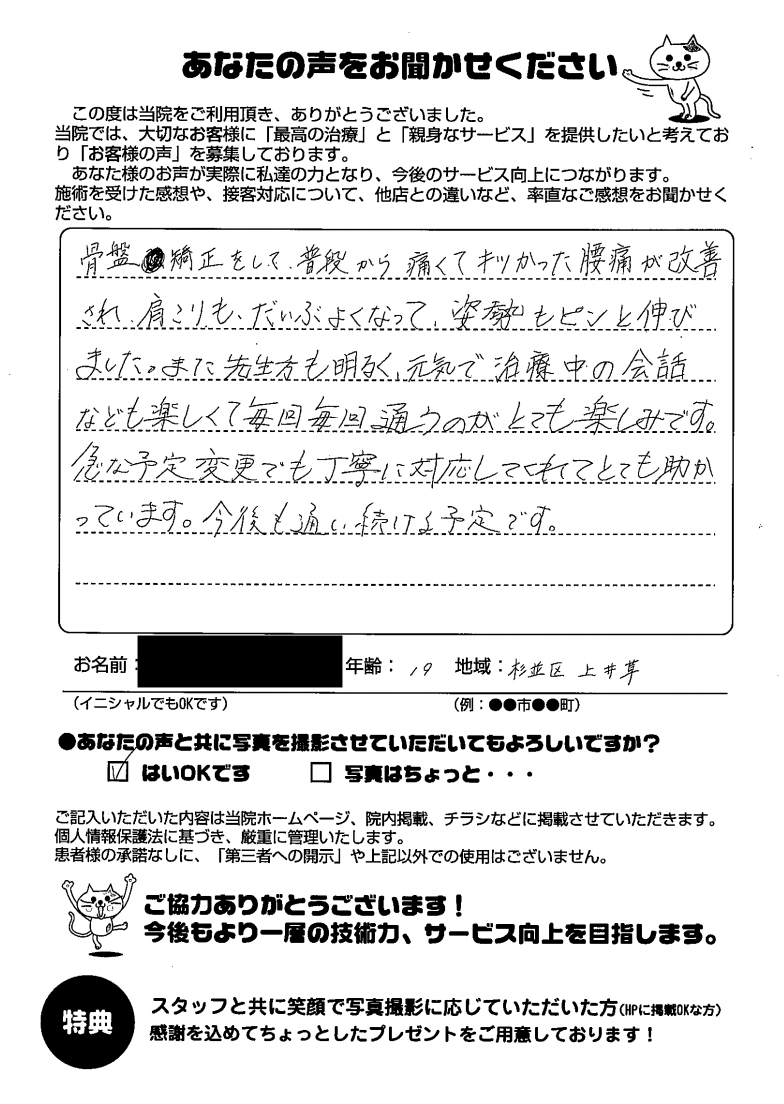 あなたの声をお聞かせください
この度は当院をご利用頂き、ありがとうございました。
当院では、大切なお客様に「最高の治療」と「親身なサービス」を提供したいと考えてお
り「お客様の声」を募集しております。
あなた様のお声が実際に私達の力となり、今後のサービス向上につながります。
施術を受けた感想や、接客対応について、他店との違いなど、率直なご感想をお聞かせく
ださい。
骨盤矯正をして、普段から痛くてキツかった腰痛が改善
され、肩こりも、だいぶよくなって、姿勢もピンと伸び
ました。また先生方も明るく、元気で治療中の会話
なども楽しくて毎回毎回通うのがとても楽しみです。
急な予定変更でも丁寧に対応してくれてとても助か
っています。今後も通い続ける予定です。
お名前： 年齢： 19 地域：杉並区 上井草
（イニシャルでもOKです） （例：●●市●●町）
●あなたの声と共に写真を撮影させていただいてもよろしいですか？
☑ はいOKです □ 写真はちょっと・・・
ご記入いただいた内容は当院ホームページ、院内掲載、チラシなどに掲載させていただきます。
個人情報保護法に基づき、厳重に管理いたします。
患者様の承諾なしに、「第三者への開示」や上記以外での使用はございません。
ご協力ありがとうございます！
今後もより一層の技術力、サービス向上を目指します。
特典
スタッフと共に笑顔で写真撮影に応じていただいた方(HPに掲載OKな方)
感謝を込めてちょっとしたプレゼントをご用意しております！